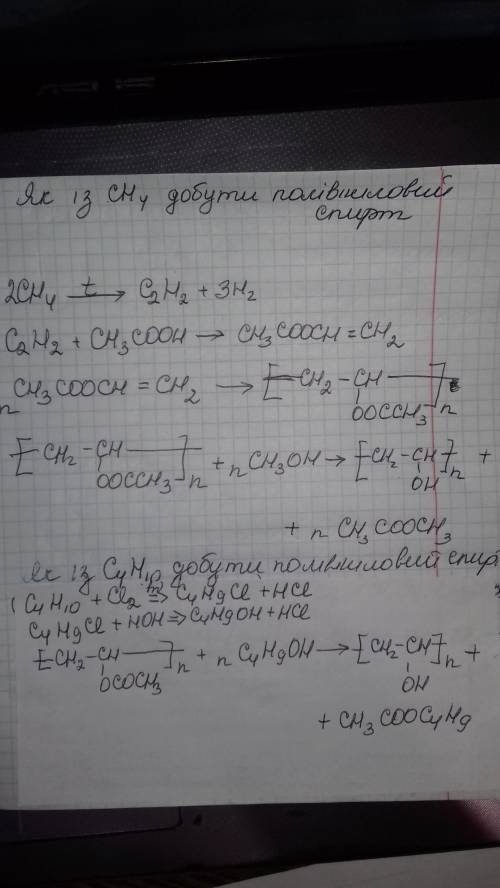 Як із CH₄ добути полівініловий
спирт
2CH₄ —t→ C₂H₂ + 3H₂
C₂H₂ + CH₃COOH → CH₃COOCH = CH₂
nCH₃COOCH = CH₂ → [—CH₂ – CH—]n
OOCCH₃
[—CH₂ – CH—]n + nCH₃OH → [CH₂ – CH]n +
OOCCH₃ OH
+ n CH₃COOCH₃
Як із C₄H₁₀ добути полівініловий спирт
C₄H₁₀ + Cl₂ ⇒ C₄H₉Cl + HCl
C₄H₉Cl + HOH ⇒ C₄H₉OH + HCl
[—CH₂ – CH—]n + n C₄H₉OH → [CH₂ – CH]n +
OCOCH₃ OH
+ CH₃COOC₄H₉